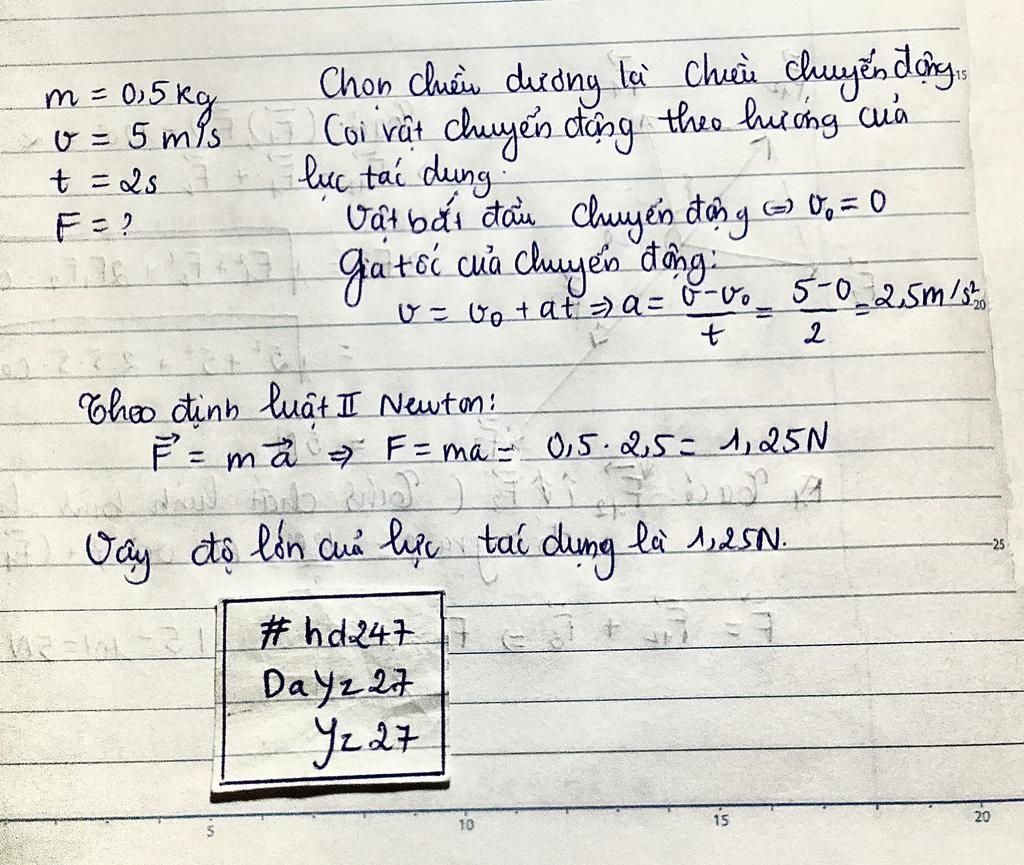 m = 0,5 kg
v = 5 m/s
t = 2s
F = ?
Chọn chiều dương là chiều chuyển động
Coi vật chuyển động theo hướng của
lực tác dụng.
Vật bắt đầu chuyển động ⇔ v₀ = 0
Gia tốc của chuyển động:
v = v₀ + at ⇒ a = (v - v₀)/t = (5 - 0)/2 = 2,5m/s²
Theo định luật II Newton:
F⃗ = ma⃗ ⇒ F = ma = 0,5 . 2,5 = 1,25N
Vậy độ lớn của lực tác dụng là 1,25N.
# hd247
Dayz27
Yz27
15
20
25
5 10 15 20